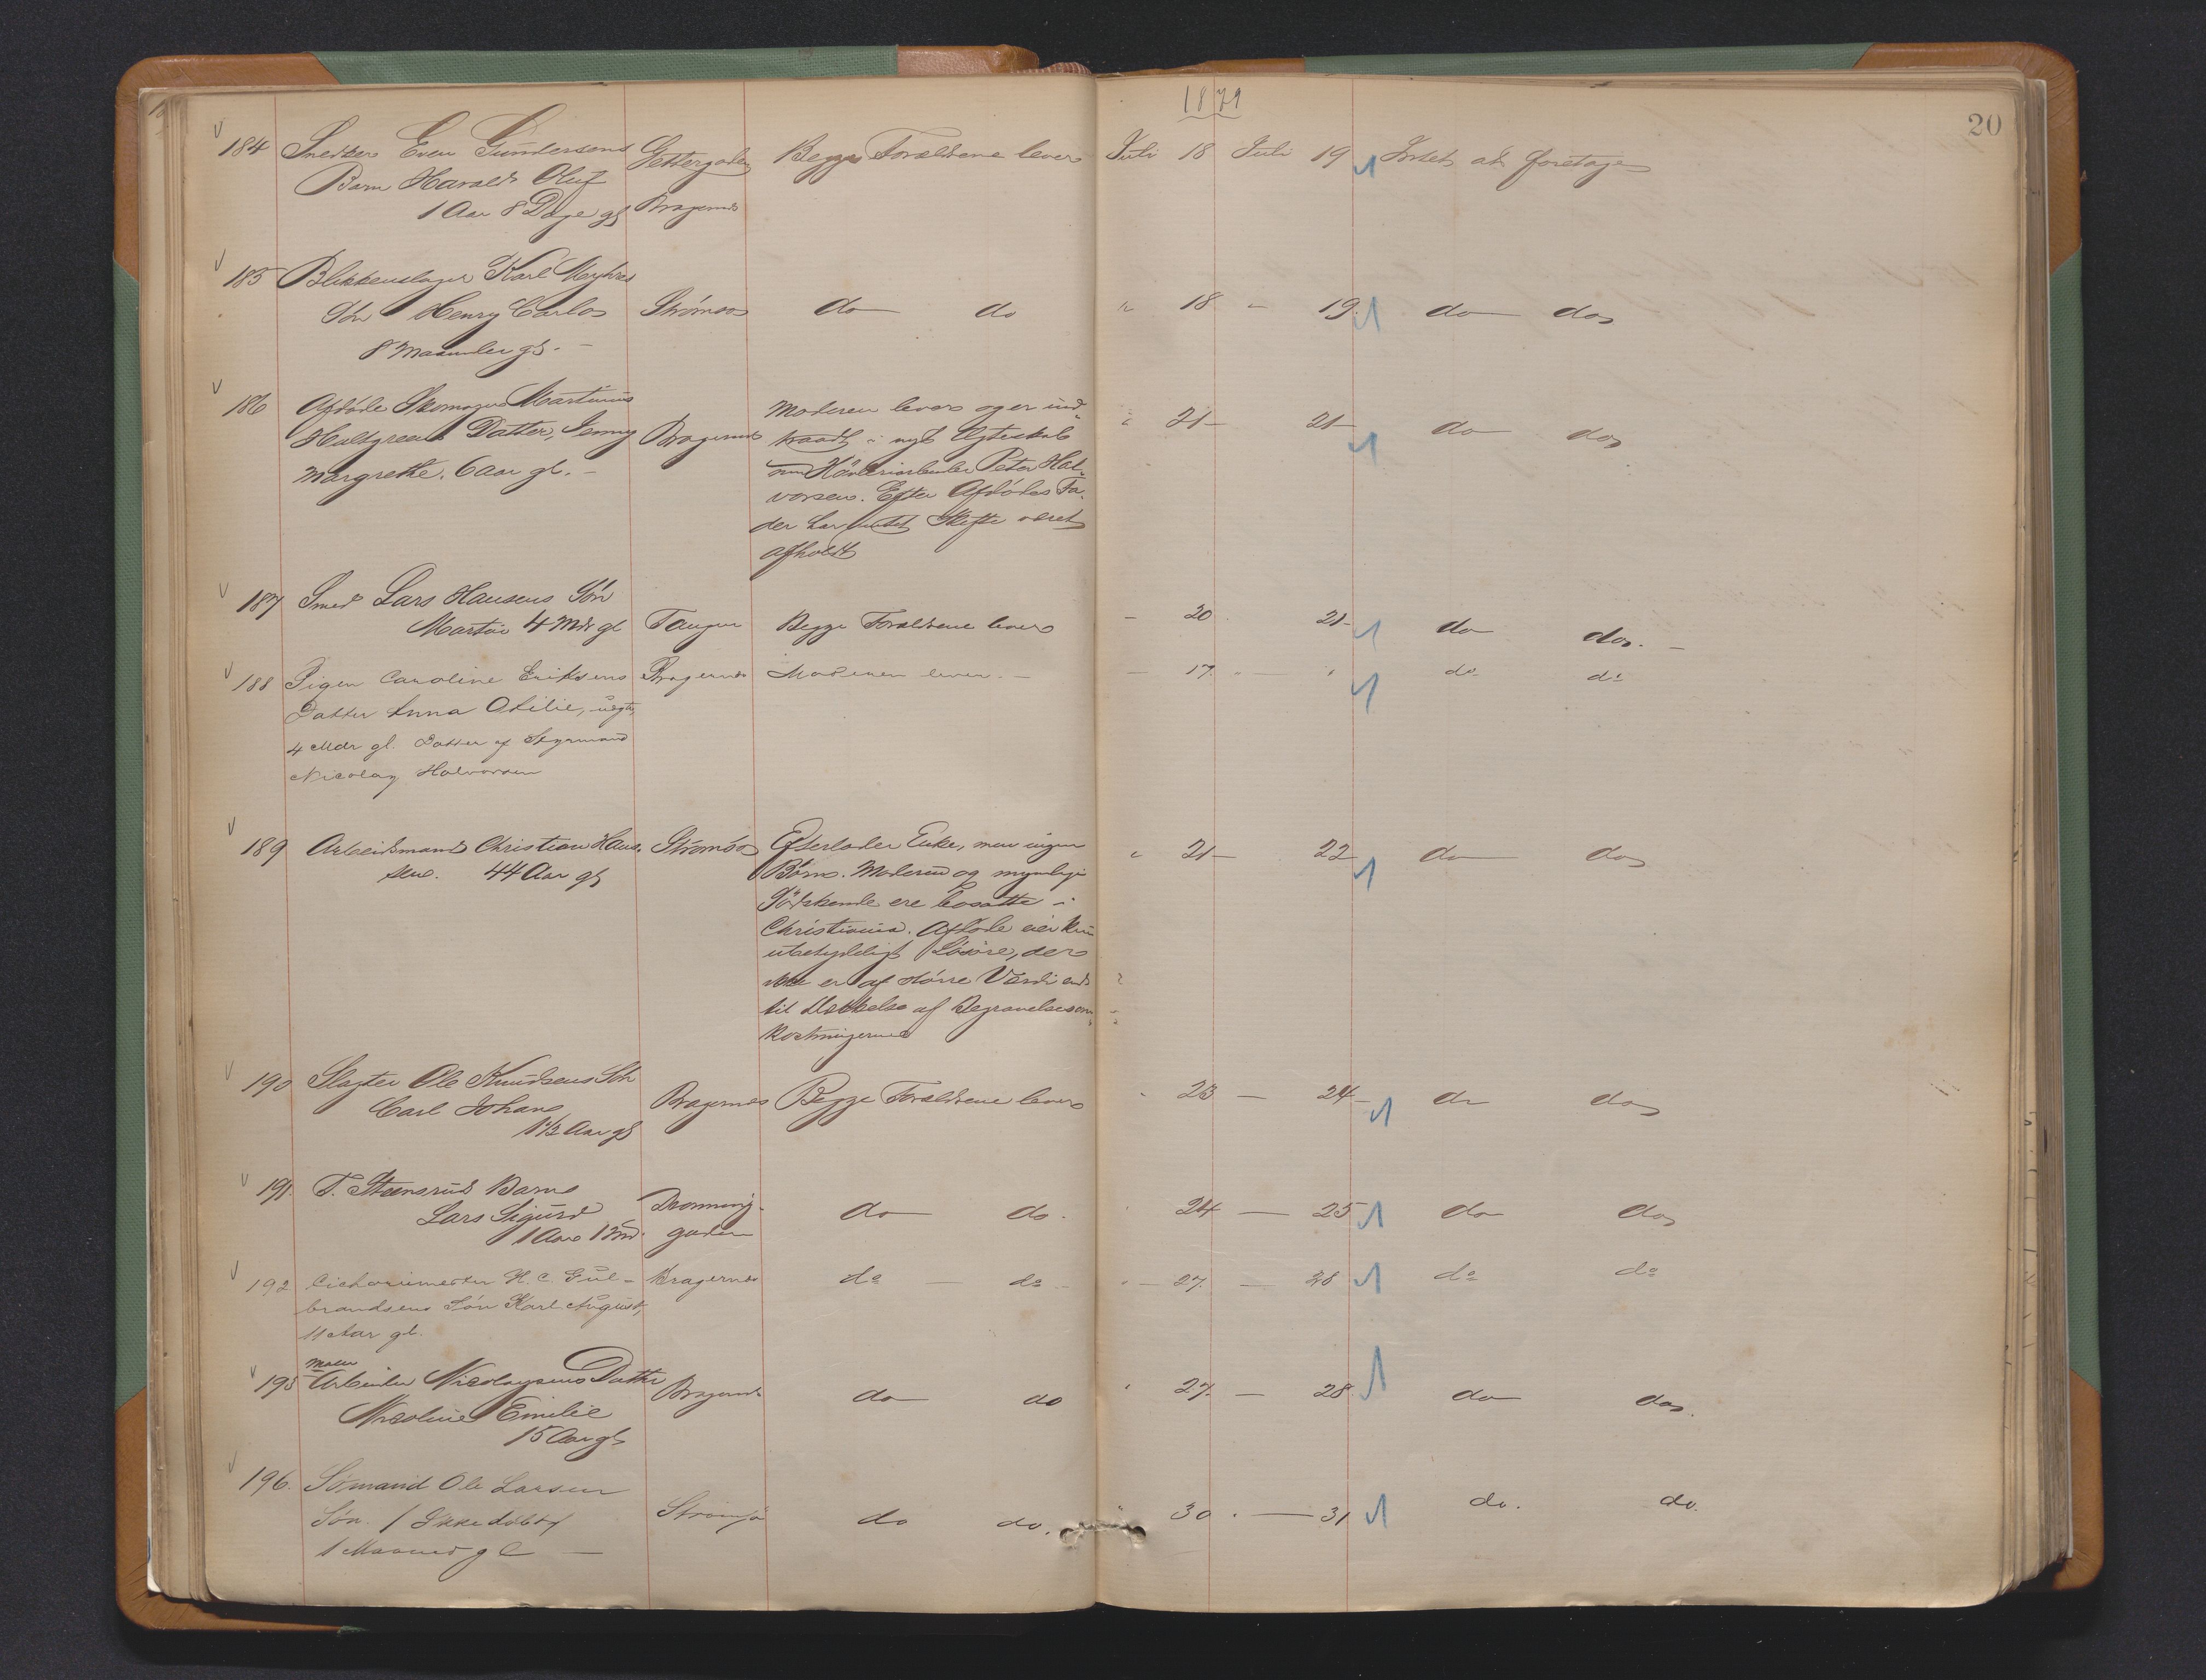 1879
20
184 Snedker Even Gundersens Gettergaden Begge Forældrene lever Juli 18 Juli 19 Intet at foretage
Barn Harald Oluf
1 Aar 8 Dage gl Bragernes
185 Blikkenslager Karl Myhres
Søn Henry Carlos Strømsø do do " 18 - 19. do do
8 Maaneder gl. -
186 Afdøde Skomager Martinius Moderen lever og er ind
Hultgreens Datter, Jenny Bragernes traadt i nyt Ægteskab " 21 - 21 - do do
Margrethe. 6 Aar gl. - med Peter Hal-
vorsen. Efter Afdødes Fa-
der har intet Skifte været
afholdt
187 Smed Lars Hansens Søn
Martin 4 Mdr gl Tangen Begge Forældrene lever - 20 21 - do do. -
188 Pigen Caroline Eriksens Bragernes Moderen lever. - - 17. " - " do do
Datter Anna Otilie, uægte,
4 Mdr gl. Datter af Styrmand
Nicolay Halvorsen
189 Arbeidsmand Christian Han- Strømsø Efterlader Enke, men ingen " 21 - 22 do do
sen. 44 Aar gl Børn. Moderen og myndige
Sødskende ere bosatte i
Christiania. Afdøde eier kun
ubetydeligt Løsøre, der
ikke er af større Værdi end
til Dækkelse af Begravelsesom-
kostningerne
190 Slagter Ole Knudsens Søn
Carl Johan Bragernes Begge Forældrene lever " 23 - 24 - do do
1 1/2 Aar gl
191. T. Steensrud Barn
Lars Sigurd Dronning- do do. " 24 - 25 do do
1 Aar 1 Md. gaden
192 Cichoriemester H. C. Gul- Bragernes do - do - " - 27. - 28 do do
brandsens Søn Karl August,
11 Aar gl.
Maler
193 Arbeider Nicolaysens Datter Bragernes do do " 27. - 28. do do.
Nicoline Emilie
15 Aar gl
196. Sømand Ole Larsen
Søn. / Ikke døbt / Strømsø do do. " 30. - 31 do. do.
1 Maaned gl -